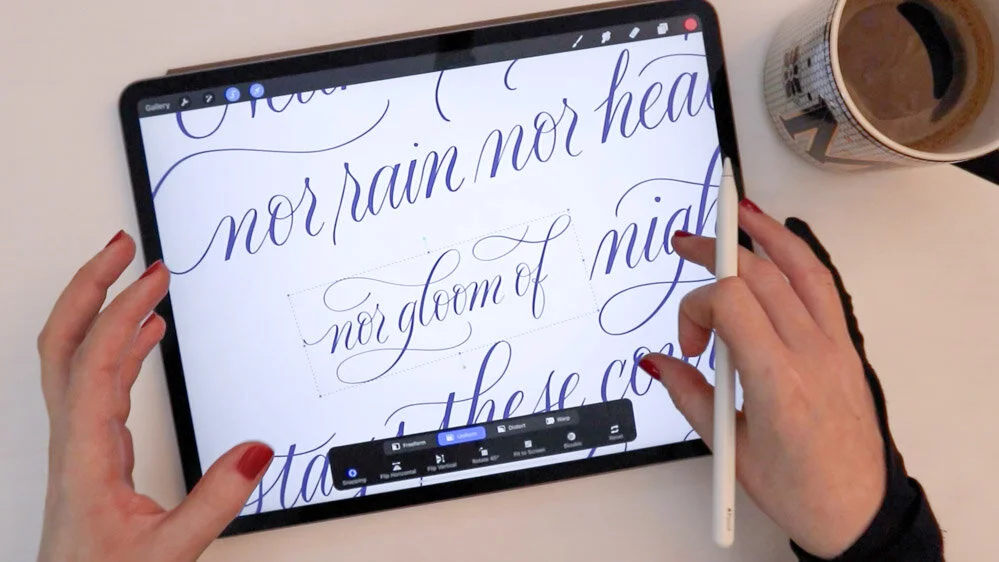 Gallery
nor rain nor heat
nor gloom of
stays these
Freeform Uniform Distort Warp
Snapping Flip Horizontal Flip Vertical Rotate 45° Fit to Screen Reset